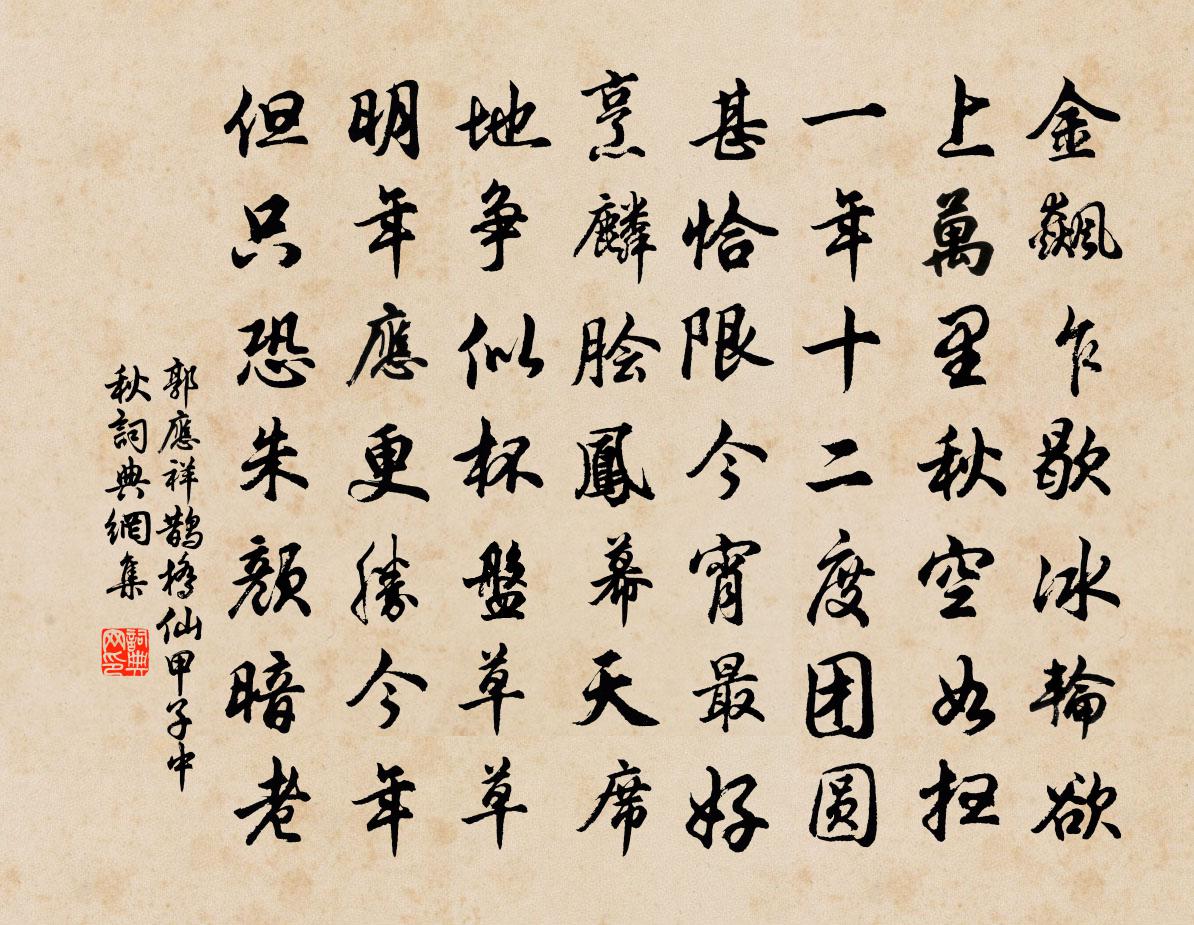 金飆乍歇冰輪欲
上萬里秋空如扫
一年十二度团圆
甚恰限今宵最好
烹麟脍鳳幕天席
地争似杯盤草草
明年應更勝今年
但只恐朱顔暗老
郭應祥鵲橋仙甲子中
秋詞典網集
詞典网印